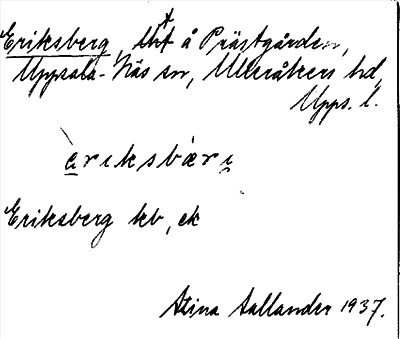 Eriksberg, lht å Prästgården,
Uppsala-Näs sn, Ulleråkers hd,
Upps. l.
èriksbæri̯
Eriksberg kb, ek
Stina Sallander 1937.